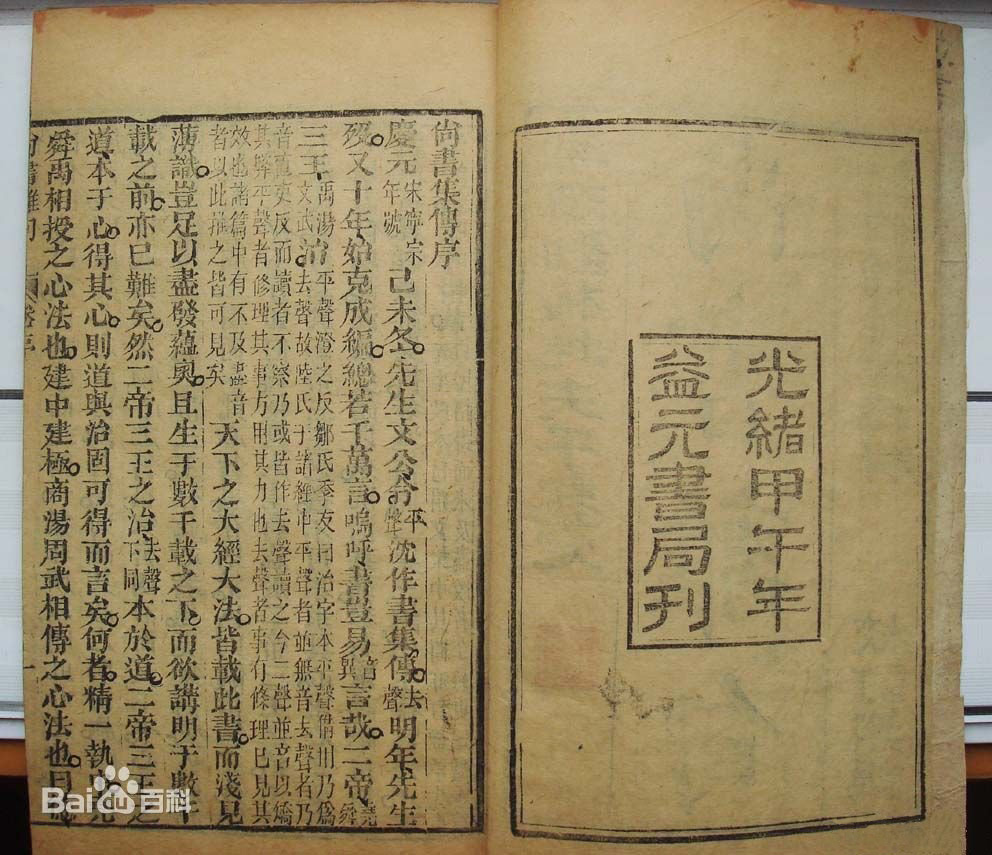 光緒甲午年
益元書局刊
尙書集傳序
慶元宋寧宗年號己未冬先生文公令平聲沈作書集傳去聲明年先生
歿又十年始克成編總若干萬言嗚呼書豈易音異言哉二帝堯舜
三王禹湯文武治平聲澄之反鄒氏季友曰治字本平聲借用乃爲去聲故陸氏于諸經中平聲者並無音去聲者乃
音直吏反而讀者不察乃或皆作去聲讀之今二聲並音以矯
其弊平聲者修理其事方用其力也去聲者事有條理已見其
效也諸篇中有不及盡音者以此推之皆可見矣天下之大經大法皆載此書而淺見
薄識豈足以盡發蘊奧且生于數千載之下而欲講明于數千
載之前亦已難矣然二帝三王之治去聲下同本於道二帝三王之
道本于心得其心則道與治固可得而言矣何者精一執中堯
舜禹相授之心法也建中建極商湯周武相傳之心法也曰
書離句
Bai百科